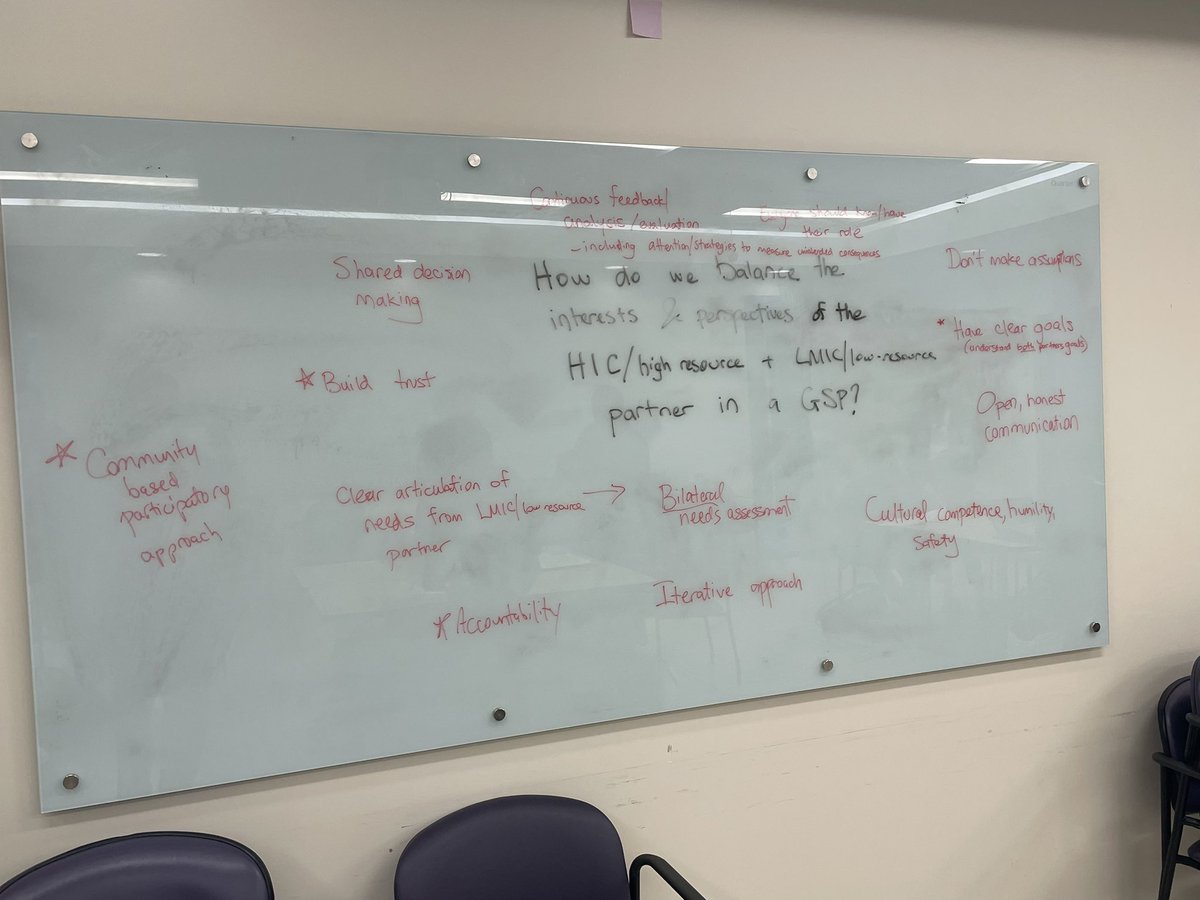 Continuous feedback/
analysis/evaluation
- including attention/strategies to measure unintended consequences
Everyone should know/have
their role
Don't make assumptions
Shared decision
making
How do we balance the
interests & perspectives of the
HIC/high resource + LMIC/low-resource
partner in a GSP?
* Have clear goals
(understand both partners goals)
* Build trust
Open, honest
communication
* Community
based
participatory
approach
Clear articulation of
needs from LMIC/low resource
partner
→ Bilateral
needs assessment
Cultural competence, humility,
safety
* Accountability
Iterative approach